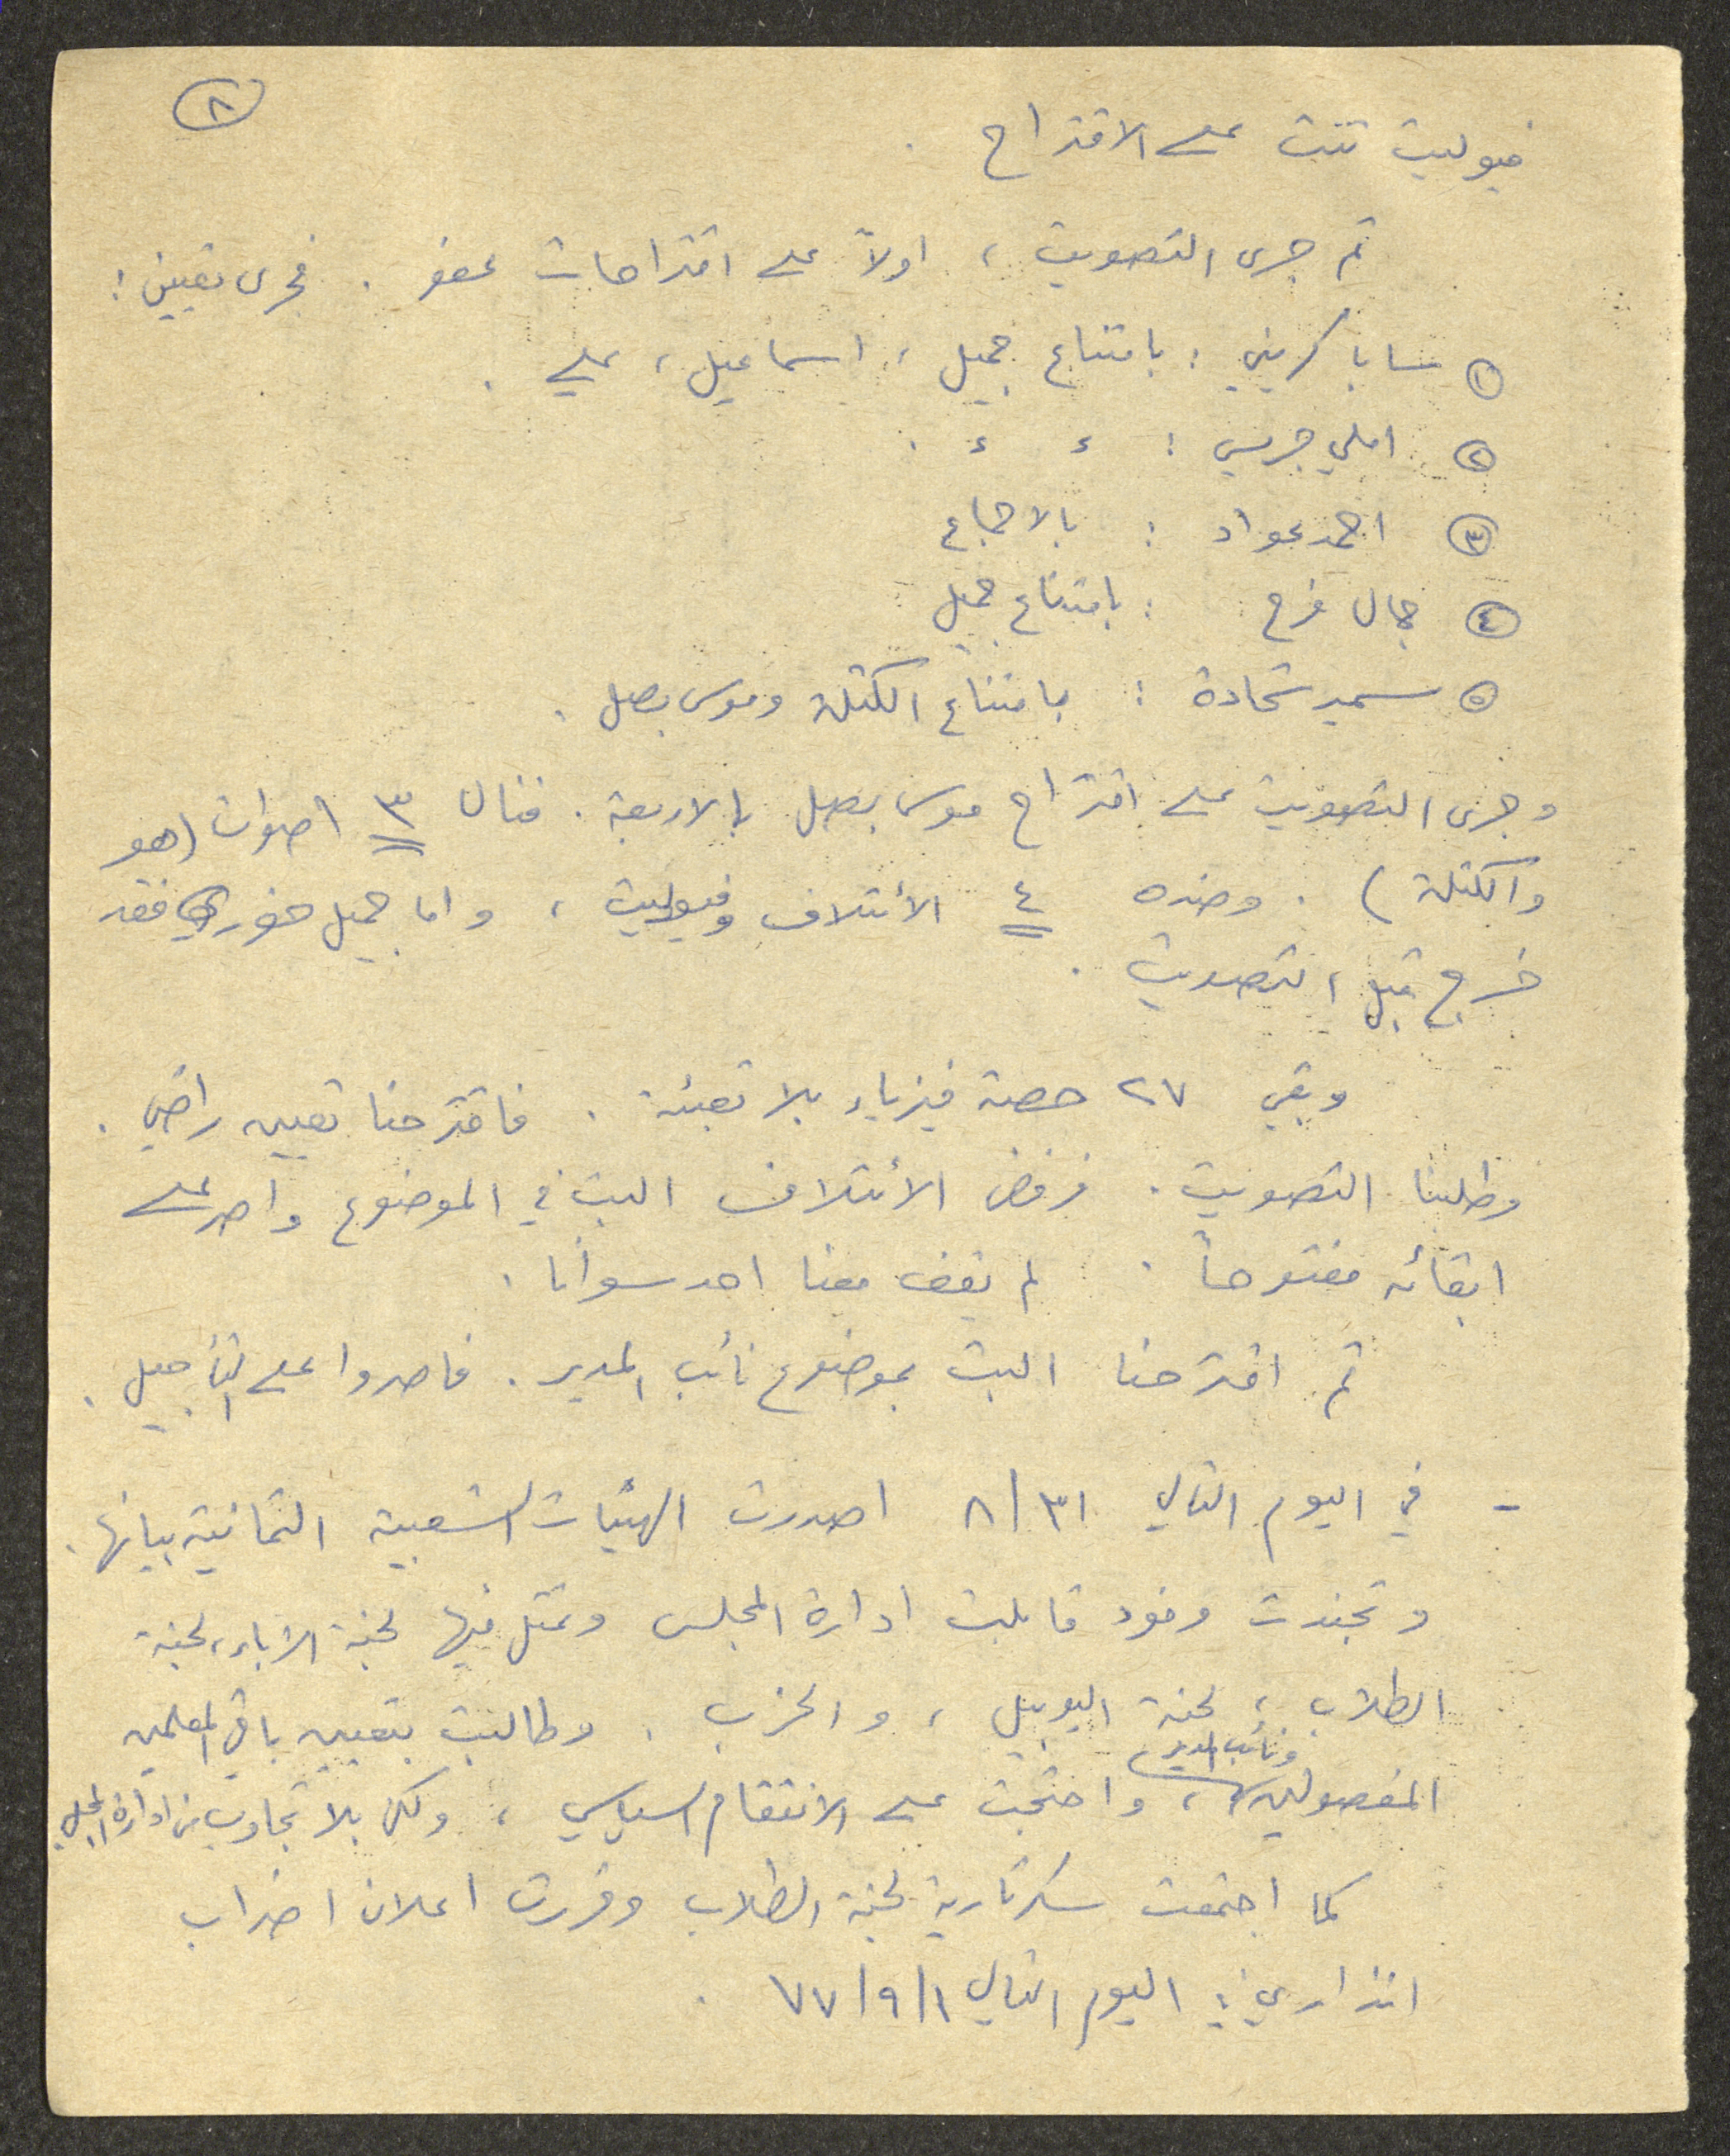 ٨
فيوليت تثبت على الاقتراح .
ثم جرى التصويت ، اولاً على اقتراحات عفو . فجرى تعيين :
١ سابا كريني : بامتناع جميل ، اسماعيل ، علي .
٢ املي جريس : ء ء .
٣ احمد عواد : بالاجماع
٤ جمال فرح : بامتناع جميل
٥ سمير شحادة : بامتناع الكتلة وموسى بصل .
وجرى التصويت على اقتراح موسى بصل بالاربعة . فنال ٣ اصوات (هو
والكتلة) . وضده ٤ الأئتلاف وفيوليت ، واما جميل خوري فقد
خرج قبل التصويت .
وبقي ٢٧ حصة فيزياء بلا تعبئة . فاقترحنا تعيين راضي .
وطلبنا التصويت . فرفض الأئتلاف البت في الموضوع واصر على
ابقائه مفتوحاً . لم يقف معنا احد سوانا .
ثم اقترحنا البت بموضوع نائب المدير . فاصروا على التأجيل .
- في اليوم التالي ٣١/٨ اصدرت الهيئات الشعبية الثمانية بيانها .
وتجندت وفود قابلت ادارة المجلس وتمثل فيها لجنة الآباء ، لجنة
الطلاب ، لجنة اليوبيل ، والحزب . وطالبت بتعيين باقي المعلمين
ونائب المدير
المفصولين ، واحتجت على الانتقام السياسي ، ولكن بلا تجاوب من ادارة المجلس .
كما اجتمعت سكرتارية لجنة الطلاب وقررت اعلان اضراب
انذاري في اليوم التالي ١/٩/٧٧ .